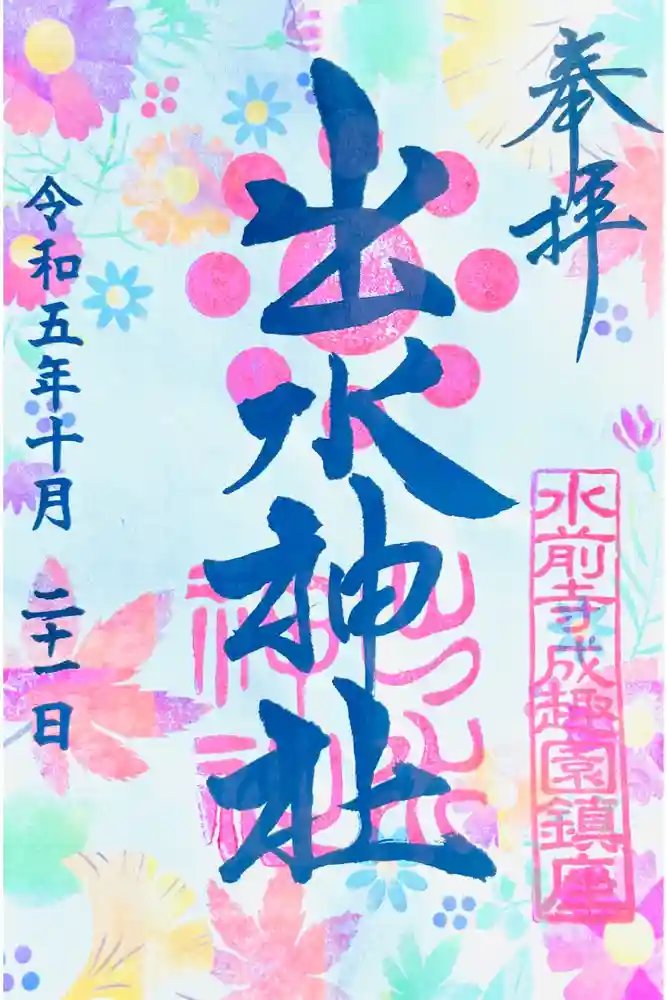 奉拝
水前寺成趣園鎮座
出水神社
令和五年十月二十一日